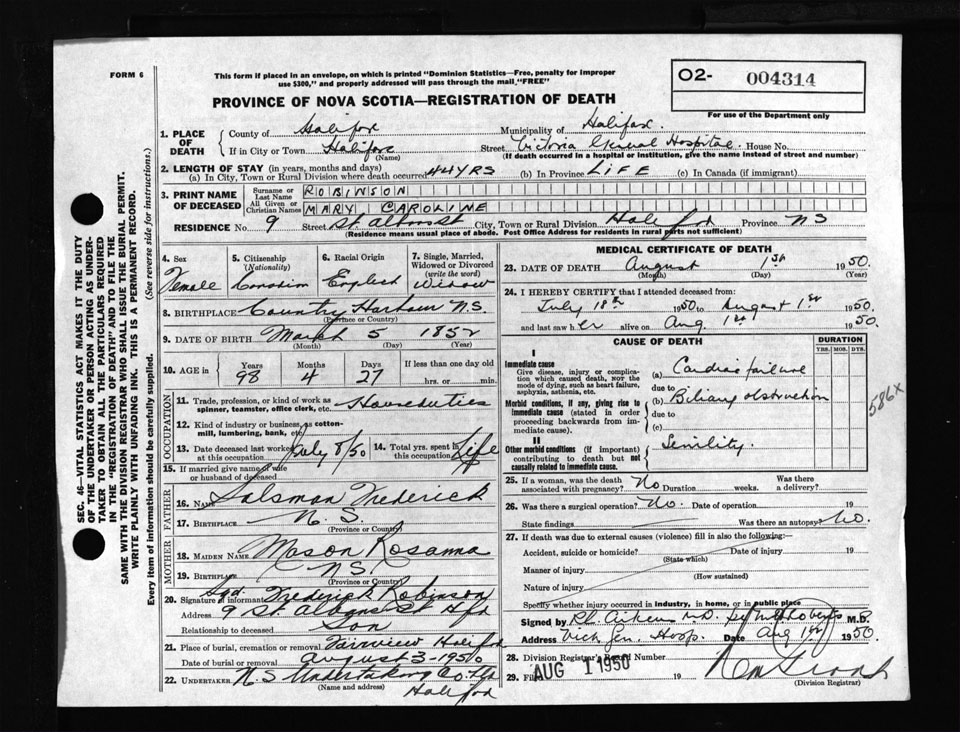 FORM 6
This form if placed in an envelope, on which is printed "Dominion Statistics—Free, penalty for improper
use $300," and properly addressed will pass through the mail "FREE"
O2- 004314
For use of the Department only
PROVINCE OF NOVA SCOTIA—REGISTRATION OF DEATH
1. PLACE OF DEATH
County of Halifax Municipality of Halifax
If in City or Town Halifax Street Victoria General Hospital House No.
(Name) (If death occurred in a hospital or institution, give the name instead of street and number)
2. LENGTH OF STAY (in years, months and days)
(a) In City, Town or Rural Division where death occurred 44 YRS (b) In Province LIFE (c) In Canada (if immigrant)
3. PRINT NAME OF DECEASED
Surname or Last Name ROBINSON
All Given or Christian Names MARY CAROLINE
RESIDENCE No. 9 Street St Albans St City, Town or Rural Division Halifax Province NS
(Residence means usual place of abode. Post Office Address for residents in rural parts not sufficient)
4. Sex Female
5. Citizenship (Nationality) Canadian
6. Racial Origin English
7. Single, Married, Widowed or Divorced (write the word) Widow
8. BIRTHPLACE Country Harbour N.S.
(Province or Country)
9. DATE OF BIRTH March 5 1852
(Month) (Day) (Year)
10. AGE in Years 98 Months 4 Days 27 If less than one day old hrs. or min.
OCCUPATION
11. Trade, profession, or kind of work as spinner, teamster, office clerk, etc. Houseduties
12. Kind of industry or business, as cotton-mill, lumbering, bank, etc.
13. Date deceased last worked at this occupation July 8/50
14. Total yrs. spent in this occupation Life
15. If married give name of wife or husband of deceased
FATHER
16. NAME Salsman Frederick
17. BIRTHPLACE N.S.
(Province or Country)
MOTHER
18. MAIDEN NAME Mason Rosanna
19. BIRTHPLACE N.S.
(Province or Country)
20. Signature of informant Sgd. Frederick Robinson
Address 9 St. Albans St Hfx
Relationship to deceased Son
21. Place of burial, cremation or removal Fairview Halifax
Date of burial or removal August 3-1950
22. UNDERTAKER N.S Undertaking Co. Ltd
(Name and address) Halifax
MEDICAL CERTIFICATE OF DEATH
23. DATE OF DEATH August 1st 1950
(Month) (Day) (Year)
24. I HEREBY CERTIFY that I attended deceased from:
July 18th 1950 to August 1st 1950
and last saw her alive on Aug 1st 1950.
CAUSE OF DEATH DURATION
YRS. MOS. DYS.
I
Immediate cause
Give disease, injury or complication which caused death, NOT the mode of dying, such as heart failure, asphyxia, asthenia, etc.
(a) Cardiac failure
due to
Morbid conditions, if any, giving rise to immediate cause (stated in order proceeding backwards from immediate cause).
(b) Biliary obstruction
due to
(c)
586x
II
Other morbid conditions (if important) contributing to death but not causally related to immediate cause.
Senility.
25. If a woman, was the death associated with pregnancy? No Duration weeks. Was there a delivery?
26. Was there a surgical operation? No. Date of operation 19
State findings Was there an autopsy? No.
27. If death was due to external causes (violence) fill in also the following:—
Accident, suicide or homicide? Date of injury 19
(State which)
Manner of injury
(How sustained)
Nature of injury
Specify whether injury occurred in industry, in home, or in public place
Signed by M.D.
Address Vick Gen. Hosp. Date Aug 1st 1950.
28. Division Registrar's Record Number
29. Filed AUG 1 1950 19
(Division Registrar)
SEC. 46—VITAL STATISTICS ACT MAKES IT THE DUTY
OF THE UNDERTAKER OR PERSON ACTING AS UNDER-
TAKER TO OBTAIN ALL THE PARTICULARS REQUIRED
IN THE "REGISTRATION OF DEATH" AND TO FILE THE
SAME WITH THE DIVISION REGISTRAR WHO SHALL ISSUE THE BURIAL PERMIT.
WRITE PLAINLY WITH UNFADING INK. THIS IS A PERMANENT RECORD.
Every item of information should be carefully supplied. (See reverse side for instructions.)